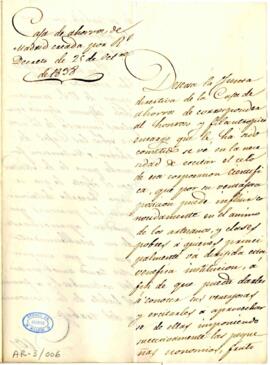 Caja de ahorros, de
Madrid creada por Rl
Decreto de 25 de Octre
de 1838
Deseosa la Junta
directiva de la Caja de
ahorros de corresponder
al honroso y filantropico
encargo que le ha sido
cometido se ve en la nece
sidad de escitar el celo
de esa corporacion cientifi
ca, que por su ventajosa
posicion puede influir
en el animo
de los artesanos, y clases
pobres a quienes princi
palmente va dirigida esta
venefica institucion, a
fin de que pueda darles
á conocer sus ventajas
y escitarlos a aprovechar
se de ellas imponiendo
sucesivamente las peque
ñas economias, fruto
AR-3/006